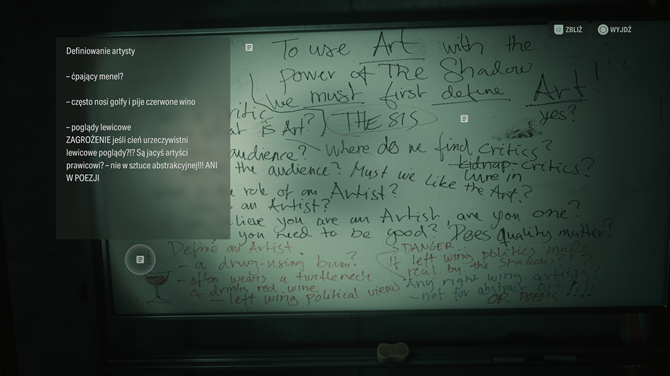 ZBLIŻ
WYJDŹ
Definiowanie artysty
– ćpający menel?
– często nosi golfy i pije czerwone wino
– poglądy lewicowe
ZAGROŻENIE jeśli cień urzeczywistni
lewicowe poglądy?!? Są jacyś artyści
prawicowi? – nie w sztuce abstrakcyjnej!!! ANI
W POEZJI
To use Art with the
power of The Shadow
we must first define Art!
yes?
critic
at is Art? THESIS
audience? Where do we find critics?
the audience? Must we like the Art?
kidnap critics?
lure in
role of an Artist?
an Artist?
lieve you are an Artist, are you one?
you need to be good? Does quality matter?
Define an Artist.
- a drug-using bum?
- often wears a turtleneck
& drinks red wine
- left wing political views
DANGER:
if left wing politics made
real by the Shadow?!?
Any right wing artists?
- not for abstract art!!!!
OR POEMS